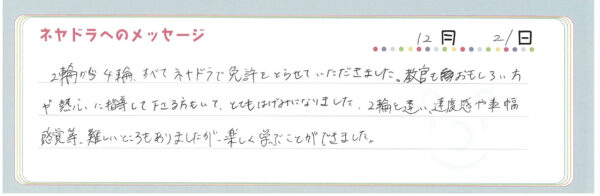 ネヤドラへのメッセージ
12月 21日
2輪から4輪、すべてネヤドラで免許をとらせていただきました。教官もおもしろい方
や熱心に指導して下さる方もいて、とてもはげみになりました。2輪と違い、速度感や車幅
感覚等、難しいところもありましたが、楽しく学ぶことができました。